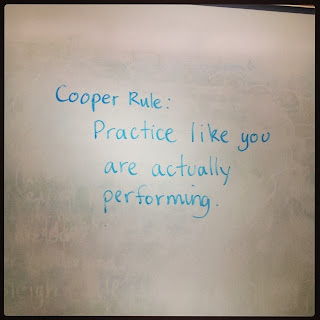 Cooper Rule:
Practice like you
are actually
performing.